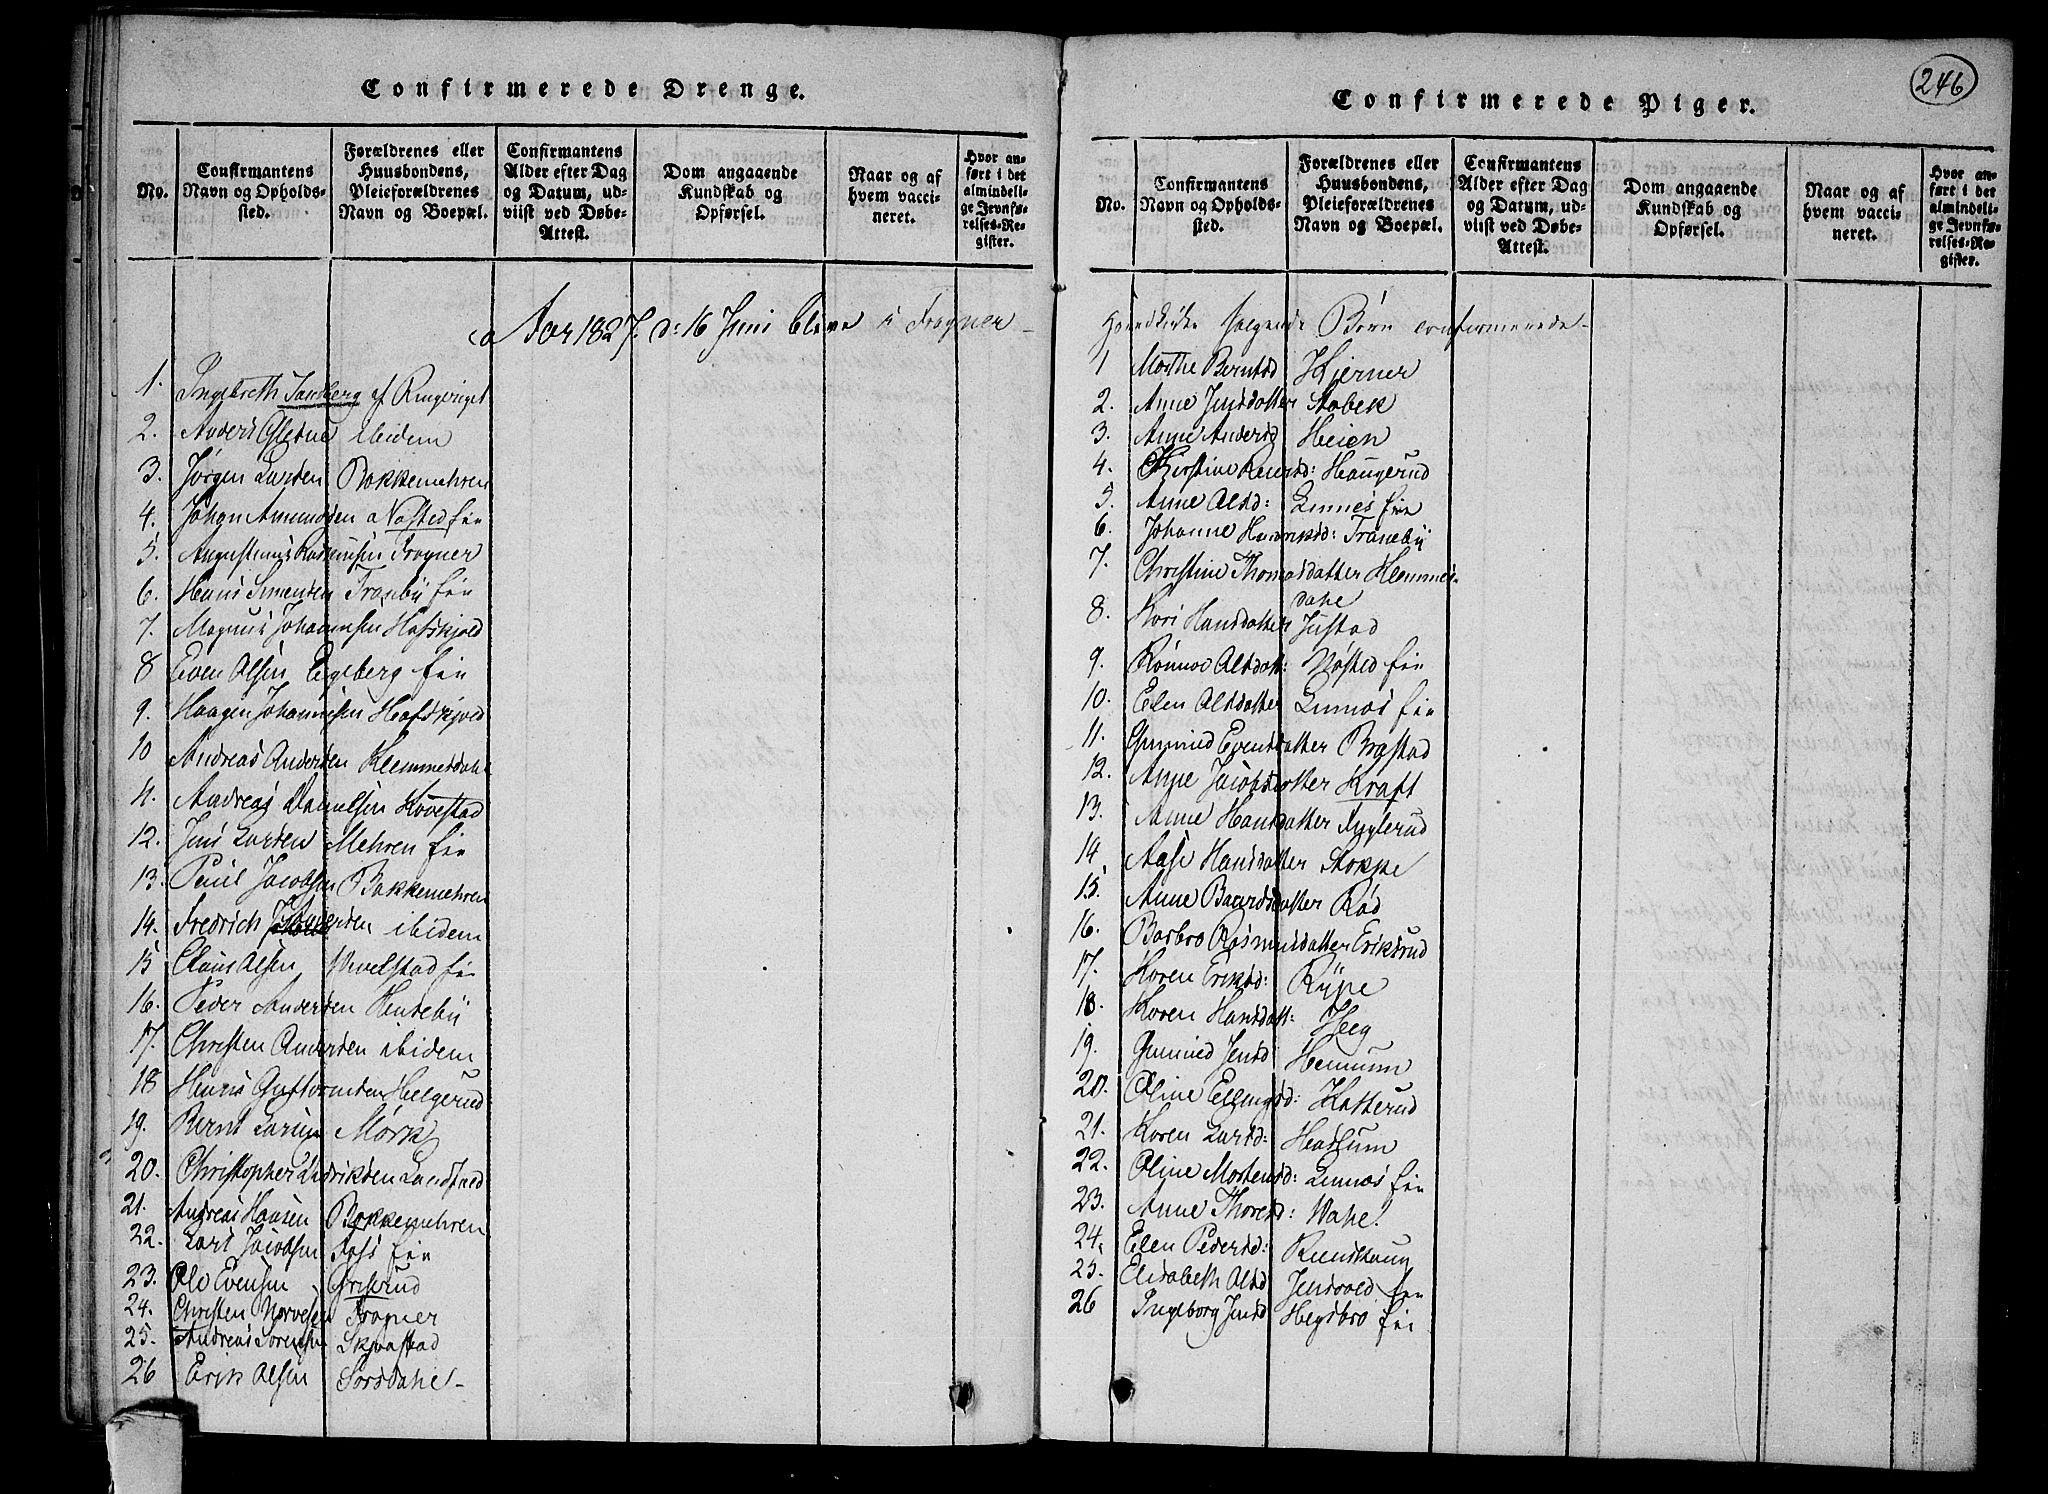 Confirmerede Drenge.
No.
Confirmantens
Navn og Opholds-
sted.
Forældrenes eller
Huusbondens,
Pleieforældrenes
Navn og Boepæl.
Confirmantens
Alder efter Dag
og Datum, ud-
viist ved Døbe-
Attest.
Dom angaaende
Kundskab og
Opførsel.
Naar og af
hvem vacci-
neret.
Hvor an-
ført i det
almindeli-
ge Jevnfø-
relses-Re-
gister.
Aar 1827. d: 16 Juni bleve i Frogner
1. Ingebreth Sandberg af Ringeriget
2. Anders ibidem
3. Jørgen Larsen Bakkemehren
4. Johan Amundsen Nøsted eie
5. Augustinus Rasmusen Frogner
6. Hans Simensen Tranbÿ eie
7. Magnus Johannesen Hafskjold
8 Even Olsen Egeberg eie
9. Haagen Johannesen Hafskjold
10 Andreas Andersen Klemmesdahl
11. Andreas Danielsen Kovestad
12. Jens Larsen Mehren eie
13. Jacobsen Bakkemehren
14. Fredrich ibidem
15 Claus Olsen Vevelstad eie
16. Peder Andersen Huseby
17. Christen Andersen ibidem
18 Hans Guttormsen Helgerud
19. Bernt Larsen Mørk
20. Christopher
21. Andreas Hansen Bakkemehren
22. Lars Jacobsen Foss eie
23. Ole Evensen Griserud
24. Christen Frogner
25. Andreas Sørensen Skjvestad
26 Erik Olsen Sørsdahl
Confirmerede Piger.
246
No.
Confirmantens
Navn og Opholds-
sted.
Forældrenes eller
Huusbondens,
Pleieforældrenes
Navn og Boepæl.
Confirmantens
Alder efter Dag
og Datum, ud-
viist ved Døbe-
Attest.
Dom angaaende
Kundskab og
Opførsel.
Naar og af
hvem vacci-
neret.
Hvor an-
ført i det
almindeli-
ge Jevnfø-
relses-Re-
gister.
Hovedkirke følgende Børn confirmerede
1 Marthe Berntsd Kjerner
2. Anne Jensdatter Stabek
3. Anne Andersd Heien
4. Kirstine Haugerud
5. Anne Olsd: Linnes eie
6. Johanne Henriksd: Tranebÿ
7. Christine Thomasdatter Klemmes-
dahl
8. Kari Hansdatter Justad
9. Rønnoe Olsdatt: Nøsted eie
10. Elen Olsdatter Linnæs eie
11. Gunnild Evensdatter Bragstad
12. Anne Jacobsdatter Kraft
13. Anne Hansdatter Fuglerud
14 Aase Hansdatter Stokke
15. Anne Baardsdatter Rød
16. Barbro Rasmusdatter Eriksrud
17. Karen Eriksd: Rÿpe
18. Karen Hansdatt: Heg
19. Gunnild Jensd Hennum
20. Oline Ellingsd: Katterud
21. Karen Larsd: Haslum
22. Oline Mortensd: Linnæs eie
23. Anne Thoresd: Wahl
24. Elen Pedersd: Rundthaug
25. Elisabeth Olsd Jensvold eie
26 Ingeborg Jensd Hegsbro eie